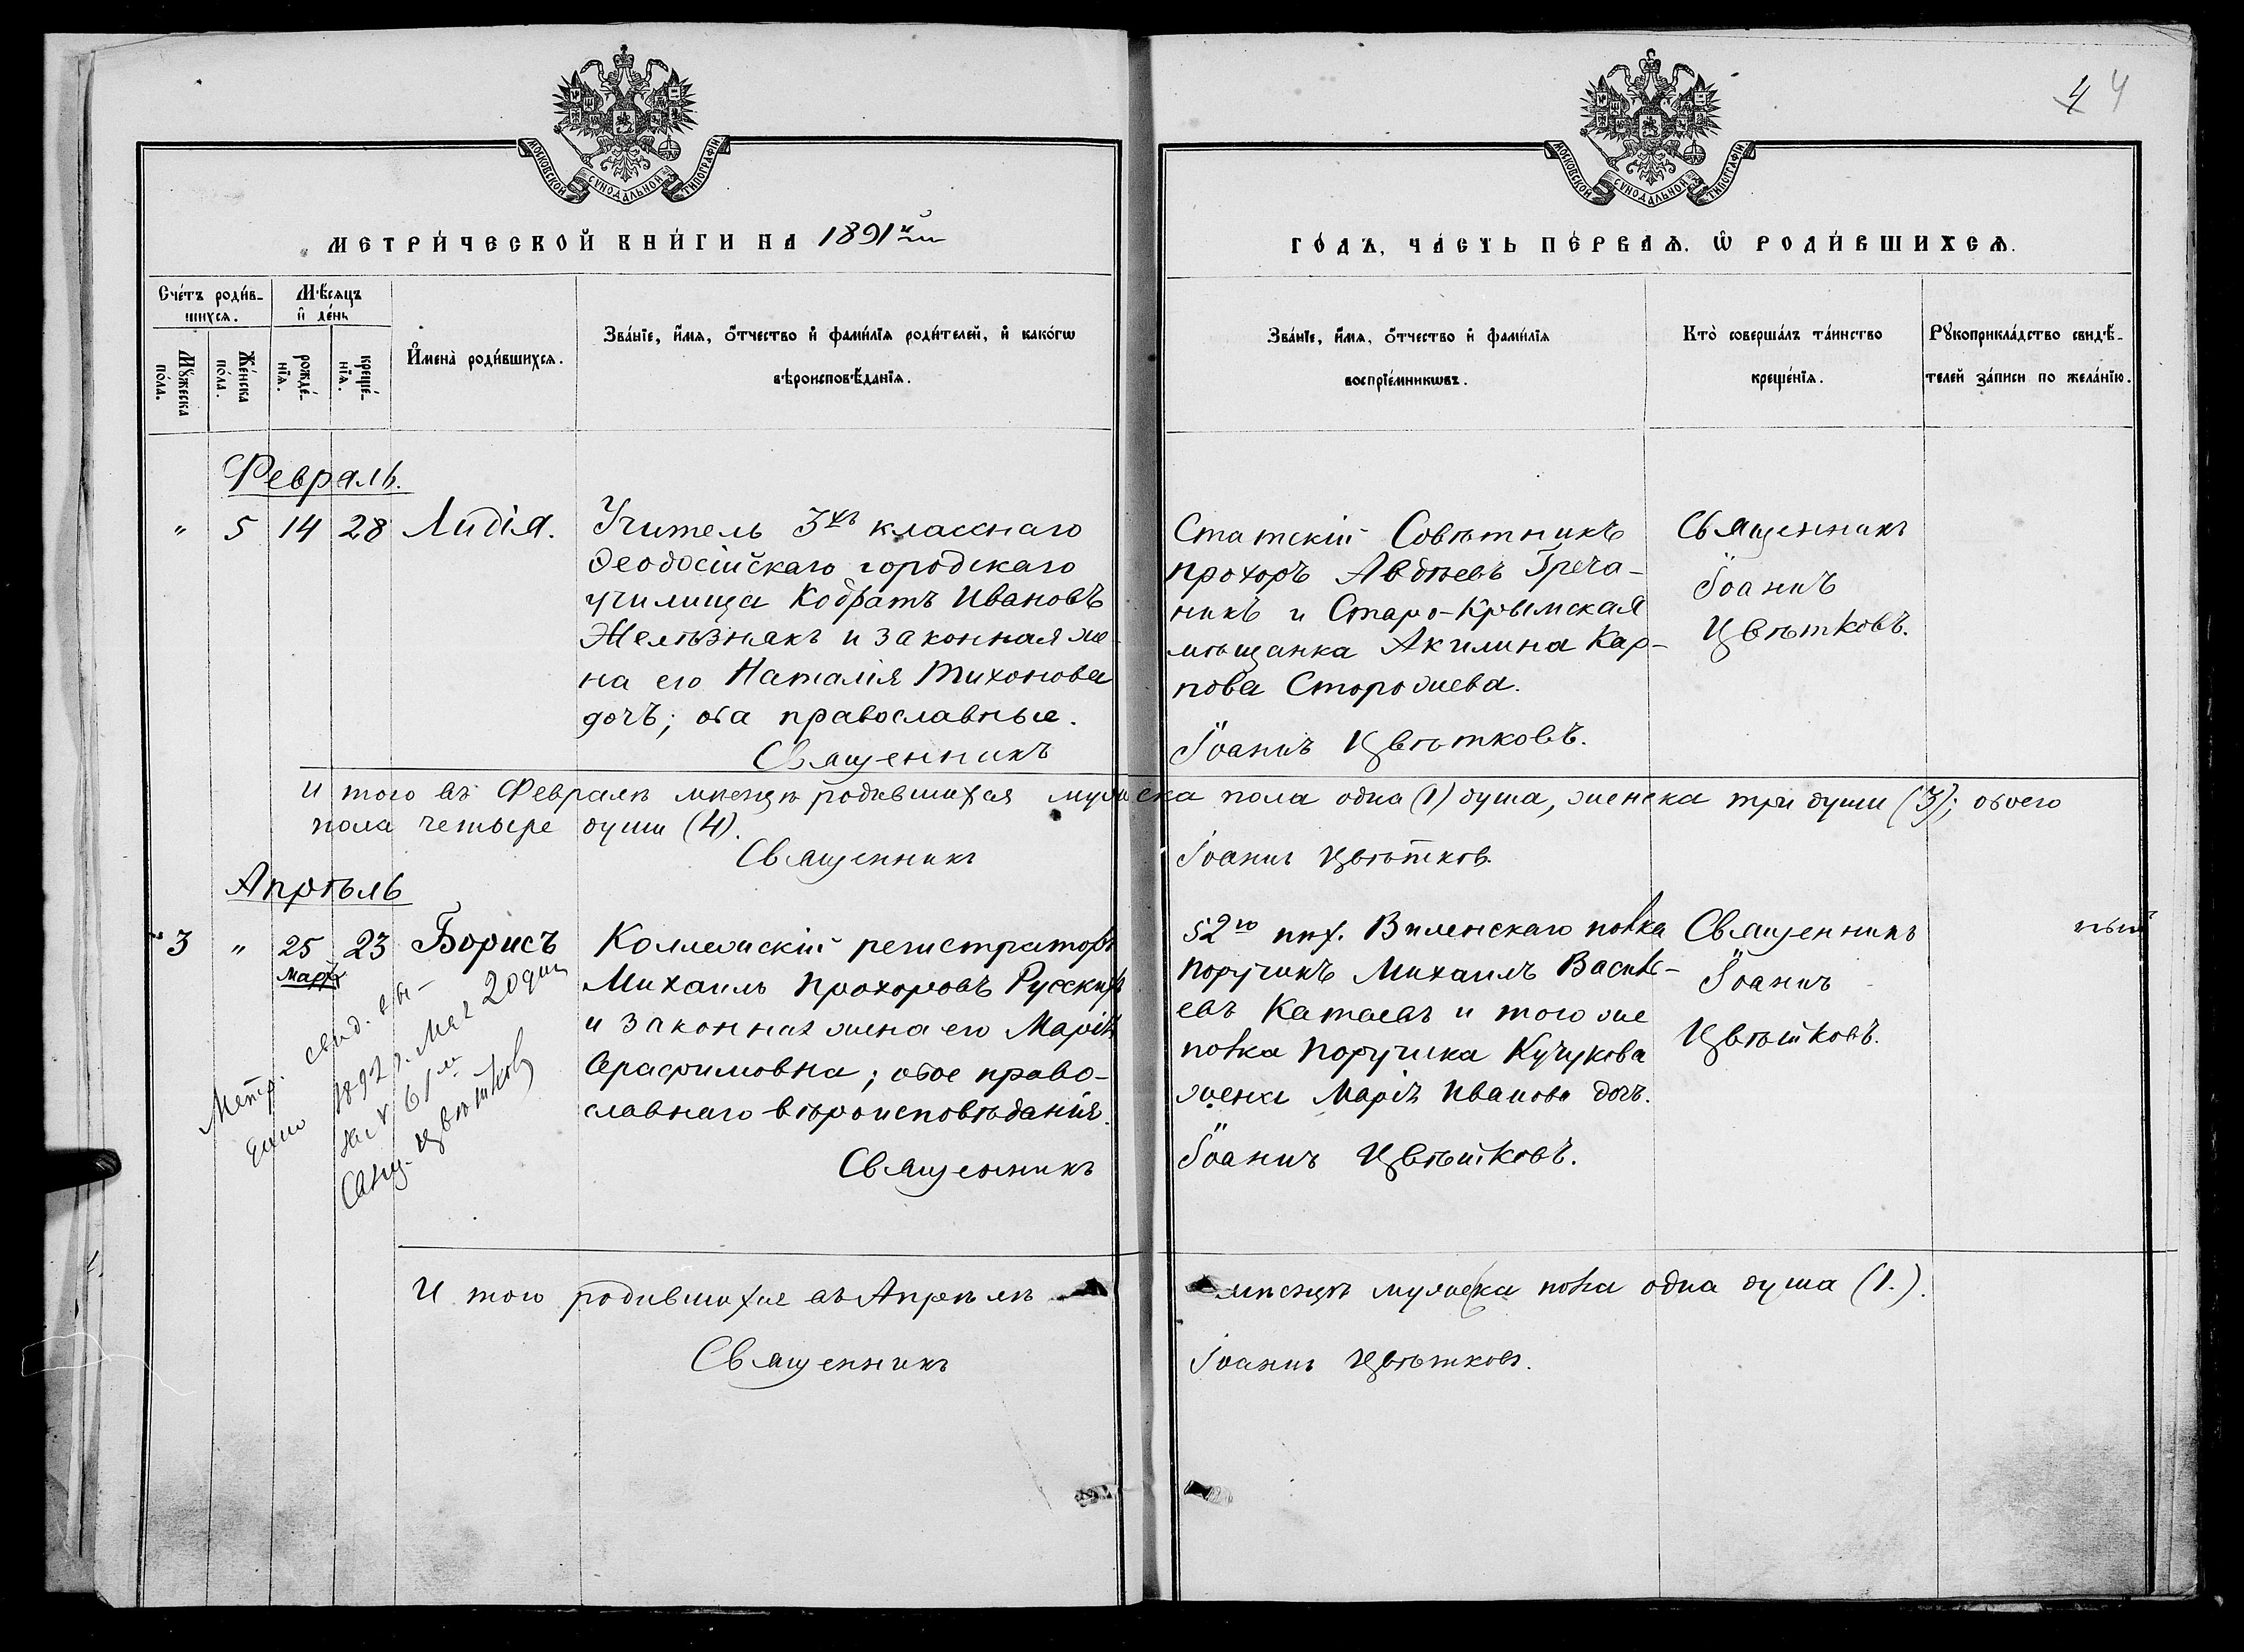 4 4
МОСКОВСКОЙ СѴНОДАЛЬНОЙ ТИПОГРАФІИ
МОСКОВСКОЙ СѴНОДАЛЬНОЙ ТИПОГРАФІИ
МЕТРИ́ЧЕСКОЙ КНИ́ГИ НА 1891й
ГО́ДЪ, ЧА́СТЬ ПЕ́РВАѦ, Ѡ҆ РОДИ́ВШИХСѦ.
Сче́тъ роди́в-
шихсѧ.
Мꙋ́жеска по́ла.
Же́нска по́ла.
Мѣ́сѧцъ
и҆ де́нь
рожде́-
нїѧ.
креще́-
нїѧ.
И҆мена̀ роди́вшихсѧ.
Зва́нїе, и҆́мѧ, ѻ҆́тчество и҆ фами́лїѧ роди́телей, и҆ како́гѡ
вѣроисповѣ́данїѧ.
Зва́нїе, и҆́мѧ, ѻ҆́тчество и҆ фами́лїѧ
воспрїе́мникѡвъ.
Кто̀ соверша́лъ та́инство
креще́нїѧ.
Рꙋкоприкла́дство свидѣ́-
телей за́писи по жела́нїю.
Февраль.
" 5 14 28 Лидія.
Учитель 3хъ класснаго
Ѳеодосійскаго городскаго
училища Кодратъ Ивановъ
Желѣзнякъ и законная же-
на его Наталія Тихонова
дочь; оба православные.
Священникъ
Статскій Совѣтникъ
Прохоръ Авдѣевъ Греча-
никъ и Старо-Крымская
мѣщанка Акилина Кар-
пова Сторожева.
Іоаннъ Цвѣтковъ.
Священникъ
Іоаннъ
Цвѣтковъ.
И того въ Февралѣ мѣсяцѣ родившихся мужеска пола одна (1) душа, женска три души (3); обоего
пола четыре души (4).
Священникъ Іоаннъ Цвѣтков.
Апрѣль
3 " 25 23 Борисъ
Марта
Коллежскій регистраторъ
Михаилъ Прохоровъ Русскихъ
и законная жена его Марія
Серафимовна; обое право-
славнаго вѣроисповѣданія.
Священникъ
52го пѣх. Виленскаго полка
Поручикъ Михаилъ Василь-
евъ Катаевъ и того же
полка Поручика Кучукова
жена Марія Иванова дочь.
Іоаннъ Цвѣтковъ.
Священникъ
Іоаннъ
Цвѣтковъ.
Метр. свид. вы-
дано 1892 г. Мая 20 дня
за № 61м
Свящ. Цвѣтковъ
И того родившихся въ Апрѣлѣ мѣсяцѣ мужеска пола одна душа (1.).
Священникъ Іоаннъ Цвѣтковъ.